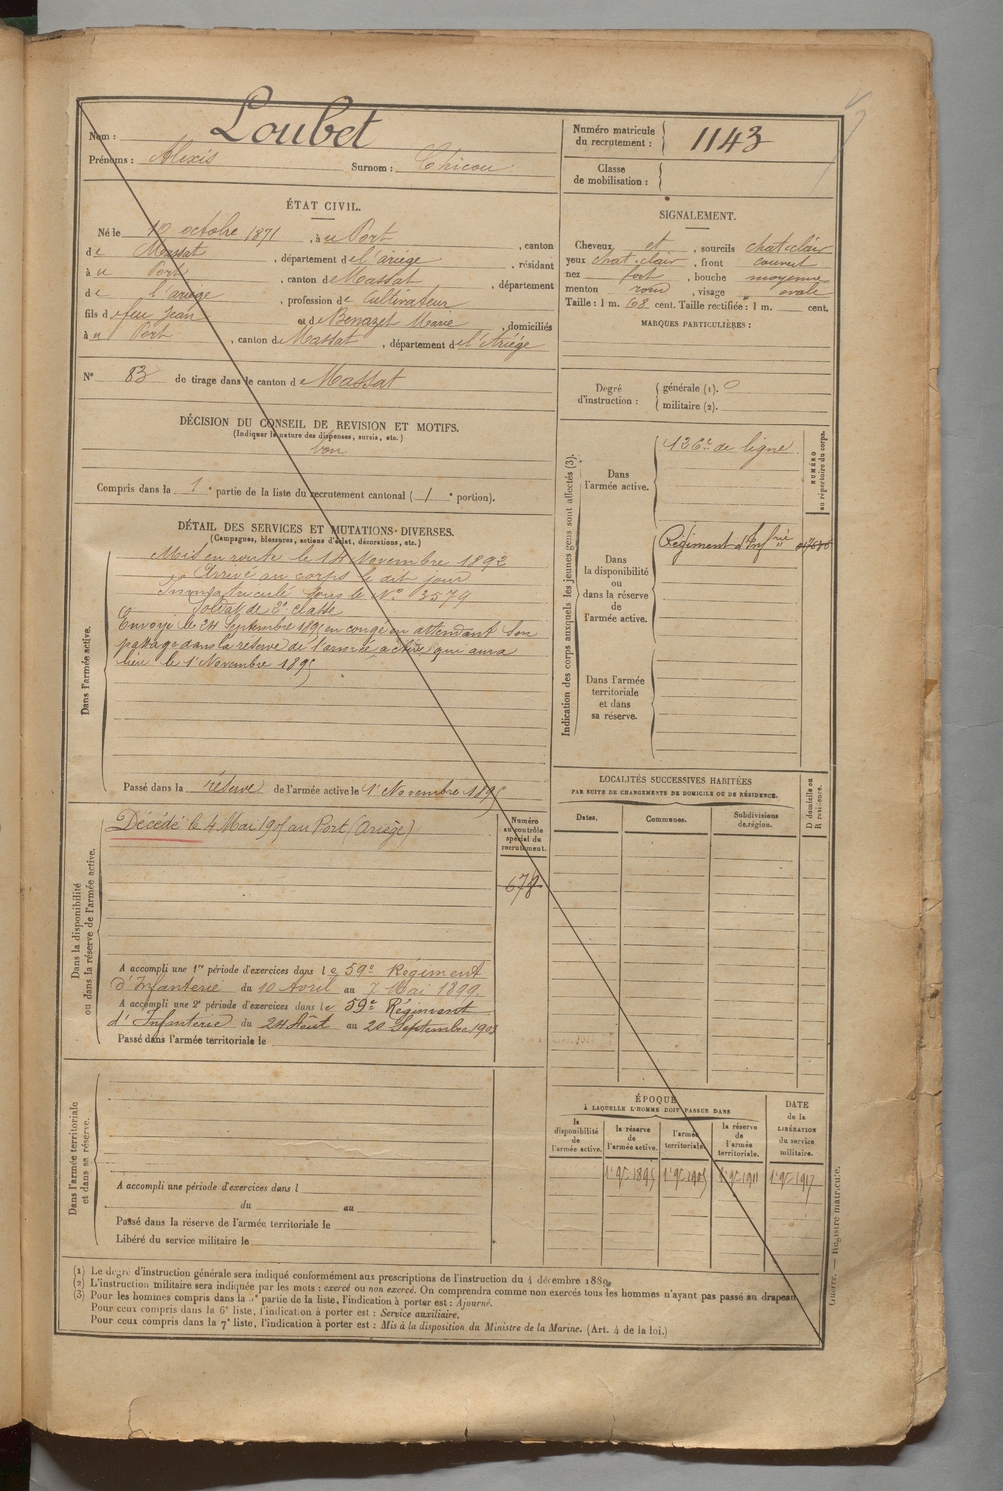 Nom : Loubet
Prénoms : Alexis Surnom : Chicou
ÉTAT CIVIL.
Né le 12 octobre 1871, à u Port, canton
de Massat, département de l'ariège, résidant
à u Port, canton de Massat, département
de l'ariège, profession de Cultivateur
fils de feu Jean et de Benazet Marie, domiciliés
à u Port, canton de Massat, département de l'Ariège
N° 83 de tirage dans le canton de Massat
DÉCISION DU CONSEIL DE REVISION ET MOTIFS.
(Indiquer la nature des dispenses, sursis, etc.)
bon
Compris dans la 1e partie de la liste du recrutement cantonal (1e portion).
DÉTAIL DES SERVICES ET MUTATIONS DIVERSES.
(Campagnes, blessures, actions d'éclat, décorations, etc.)
Dans l'armée active.
Mis en route le 14 Novembre 1892
Arrivé au corps le dit jour
Immatriculé sous le N° 3579
Soldat de 2e classe
Envoyé le 24 Septembre 1895 en congé en attendant son
passage dans la réserve de l'armée active qui aura
lieu le 1 Novembre 1895
Passé dans la réserve de l'armée active le 1 Novembre 1895
Dans la disponibilité
ou dans la réserve de l'armée active.
Décédé le 4 Mai 1905 au Port (Ariège)
Numéro
au contrôle
spécial du
recrutement.
678
A accompli une 1re période d'exercices dans le 59e Régiment
d'Infanterie du 10 Avril au 7 Mai 1899.
A accompli une 2e période d'exercices dans le 59e Régiment
d'Infanterie du 24 Août au 20 Septembre 1903
Passé dans l'armée territoriale le
Dans l'armée territoriale
et dans sa réserve.
A accompli une période d'exercices dans l
du au
Passé dans la réserve de l'armée territoriale le
Libéré du service militaire le
Numéro matricule
du recrutement : 1143
Classe
de mobilisation :
SIGNALEMENT.
Cheveux et, sourcils chat-clair
yeux chat-clair, front couvert
nez fort, bouche moyenne
menton rond, visage ovale
Taille : 1 m. 68 cent. Taille rectifiée : 1 m. cent.
MARQUES PARTICULIÈRES :
Degré
d'instruction :
générale (1). 0
militaire (2).
Indication des corps auxquels les jeunes gens sont affectés (3).
NUMÉRO
au répertoire du corps.
Dans
l'armée active.
126e de ligne
Dans
la disponibilité
ou
dans la réserve
de
l'armée active.
Régiment d'Infrie
Dans l'armée
territoriale
et dans
sa réserve.
LOCALITÉS SUCCESSIVES HABITÉES
PAR SUITE DE CHANGEMENTS DE DOMICILE OU DE RÉSIDENCE.
Dates.
Communes.
Subdivisions
de région.
D domicile ou
R résidence.
ÉPOQUE
À LAQUELLE L'HOMME DOIT PASSER DANS
la
disponibilité
de
l'armée active.
la réserve
de
l'armée active.
l'armée
territoriale.
la réserve
de
l'armée
territoriale.
DATE
de la
LIBÉRATION
du service
militaire.
1er 9bre 1895 1er 9bre 1905 1er 9bre 1911 1er 9bre 1917
(1) Le degré d'instruction générale sera indiqué conformément aux prescriptions de l'instruction du 4 décembre 1889.
(2) L'instruction militaire sera indiquée par les mots : exercé ou non exercé. On comprendra comme non exercés tous les hommes n'ayant pas passé au drapeau.
(3) Pour les hommes compris dans la 5e partie de la liste, l'indication à porter est : Ajourné.
Pour ceux compris dans la 6e liste, l'indication à porter est : Service auxiliaire.
Pour ceux compris dans la 7e liste, l'indication à porter est : Mis à la disposition du Ministre de la Marine. (Art. 4 de la loi.)
Guerre. — Registre matricule.